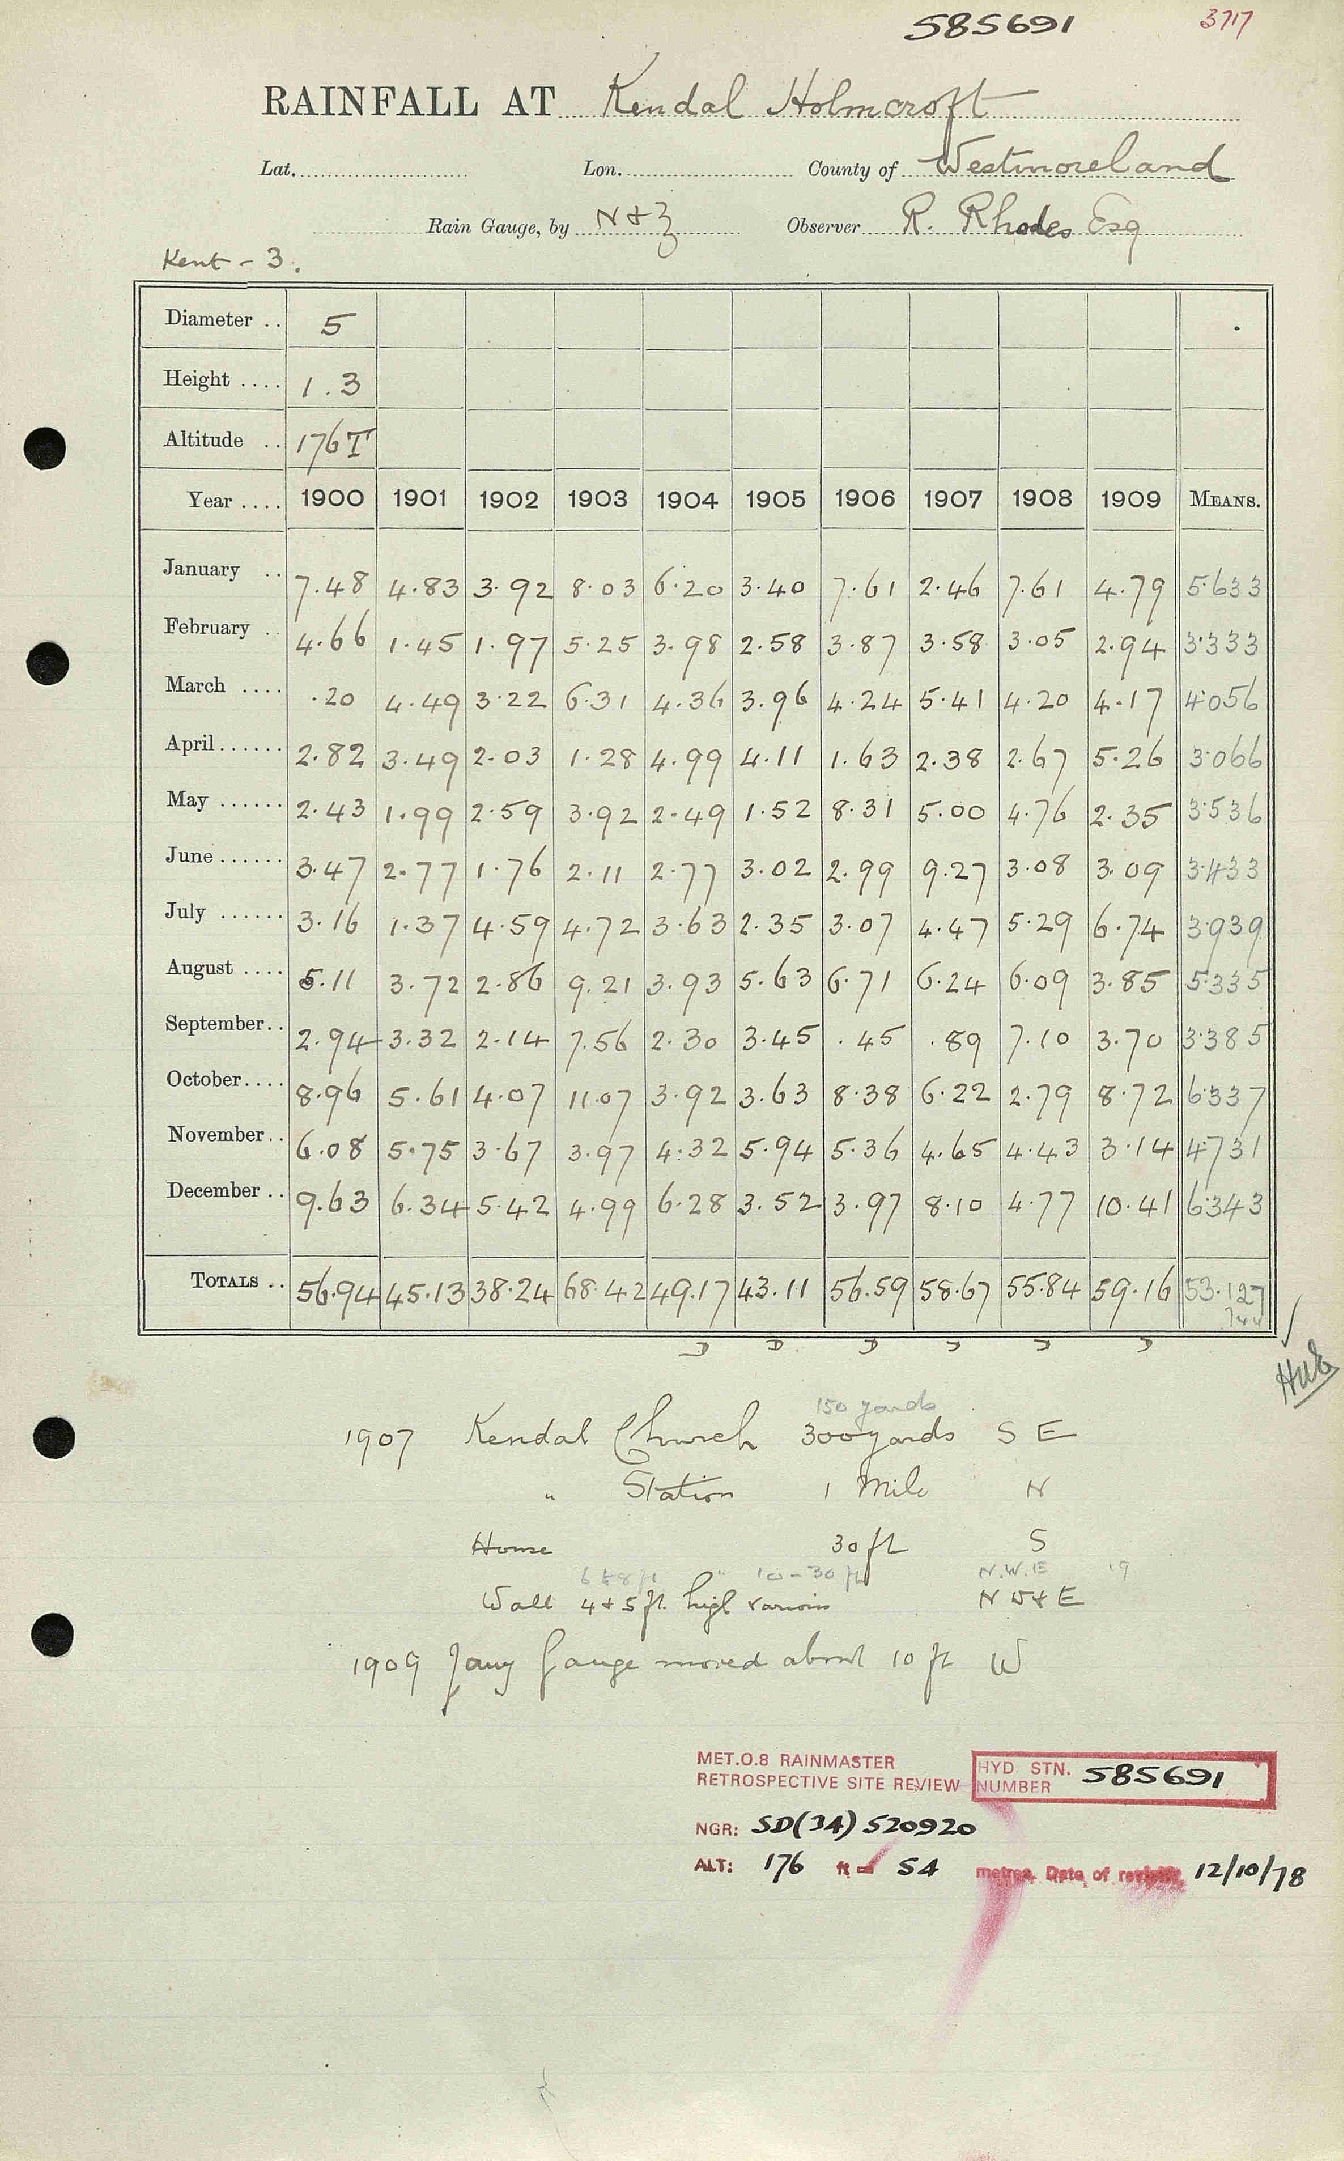 585691 3717
RAINFALL AT Kendal Holmcroft
Lat. Lon. County of Westmoreland
Rain Gauge, by N & Z Observer R. Rhodes Esq
Kent - 3.
Diameter .. 5
Height .... 1.3
Altitude .. 176 T
Year .... 1900 1901 1902 1903 1904 1905 1906 1907 1908 1909 MEANS.
January .. 7.48 4.83 3.92 8.03 6.20 3.40 7.61 2.46 7.61 4.79 5.633
February .. 4.66 1.45 1.97 5.25 3.98 2.58 3.87 3.58 3.05 2.94 3.333
March .... .20 4.49 3.22 6.31 4.36 3.96 4.24 5.41 4.20 4.17 4.056
April...... 2.82 3.49 2.03 1.28 4.99 4.11 1.63 2.38 2.67 5.26 3.066
May ...... 2.43 1.99 2.59 3.92 2.49 1.52 8.31 5.00 4.76 2.35 3.536
June ...... 3.47 2.77 1.76 2.11 2.77 3.02 2.99 9.27 3.08 3.09 3.433
July ...... 3.16 1.37 4.59 4.72 3.63 2.35 3.07 4.47 5.29 6.74 3.939
August .... 5.11 3.72 2.86 9.21 3.93 5.63 6.71 6.24 6.09 3.85 5.335
September.. 2.94 3.32 2.14 7.56 2.30 3.45 .45 .89 7.10 3.70 3.385
October.... 8.96 5.61 4.07 11.07 3.92 3.63 8.38 6.22 2.79 8.72 6.337
November.. 6.08 5.75 3.67 3.97 4.32 5.94 5.36 4.65 4.43 3.14 4.731
December .. 9.63 6.34 5.42 4.99 6.28 3.52 3.97 8.10 4.77 10.41 6.343
TOTALS .. 56.94 45.13 38.24 68.42 49.17 43.11 56.59 58.67 55.84 59.16 53.127
150 yards
1907 Kendal Church 300 yards S E
" Station 1 Mile N
House 30 ft S
6 & 8 ft " 10 - 30 ft N.W.E
Wall 4 & 5 ft high various N W & E
1909 Jany Gauge moved about 10 ft W
MET.O.8 RAINMASTER
RETROSPECTIVE SITE REVIEW
HYD. STN.
NUMBER 585691
NGR: SD(34) 520920
ALT: 176 ft = 54 metres. Date of review 12/10/78